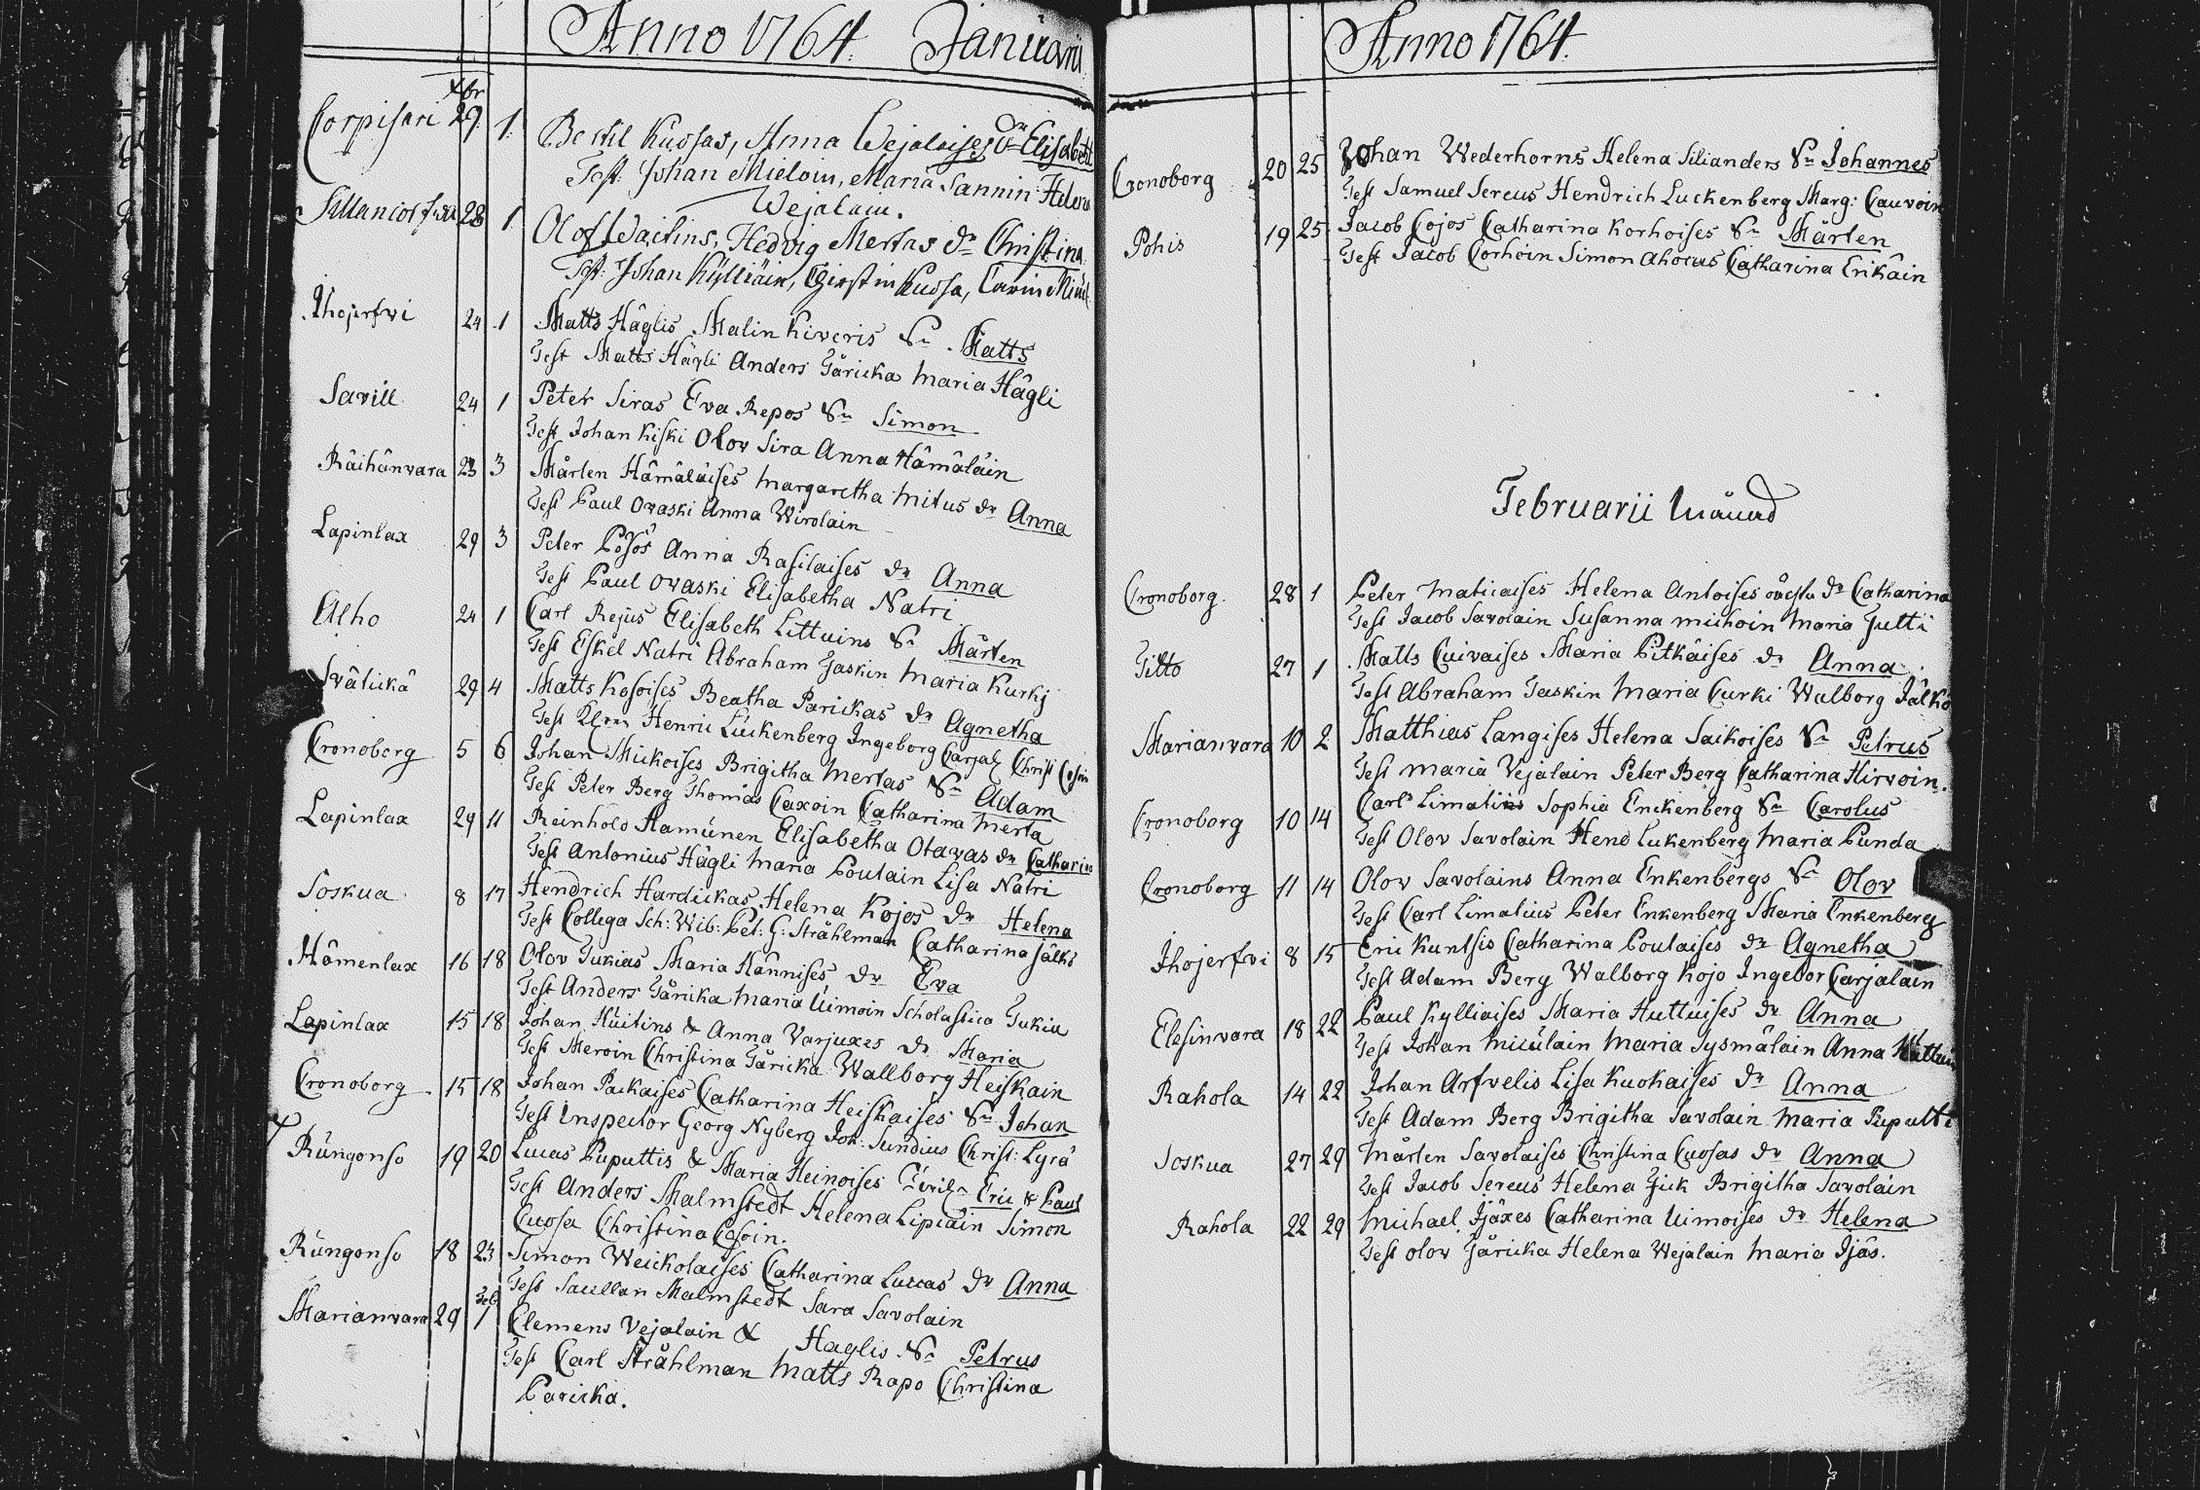 Anno 1764. Januarii
Xbr
Corpisari 29. 1. Bertil Kuosas, Anna Wejalaises Dr Elisabeth
Test: Johan Mieloin, Maria Sannin Helena
Wejalain.
28 1 Olof Waitins, Hedvig Mertas dr Christina.
Test: Johan Kylliäin, Chirstin Kuosa, Carin
Ihojerfvi 24 1 Matts Häglis Malin Kiveris Sn Matts
Test Matts Hägli Anders Järicka Maria Hägli
Savill 24 1 Peter Siras Eva Repos Sn Simon
Test Johan Kiski Olov Sira Anna Hämäläin
Räihänvara 23 3 Mårten Hämäläises Margaretha Mitus dr Anna
Test Paul Ovaski Anna Wirolain
Lapinlax 29 3 Peter Posos Anna Rasilaises dr Anna
Test Paul Ovaski Elisabetha Natri
Alho 24 1 Carl Rejus Elisabeth Littuins Sn Mårten
Test Eskel Natri Abraham Jaskin Maria Kurki
Svätickä 29 4 Matts Kosoises Beatha Parickas dr Agnetha
Test Henric Luckenberg Ingeborg Carjal Christ
Cronoborg 5 6 Johan Mickoises Brigitha Mertas Sn Adam
Test Peter Berg Thomas Caxoin Catharina Merta
Lapinlax 29 11 Reinhold Hamunen Elisabetha Otavas dr Catharina
Test Antonius Hägli Maria Poutain Lisa Natri
Soskua 8 17 Hendrich Hardickas Helena Kojos dr Helena
Test Collega Sch: Wib: Pet: G: Stråhlman Catharina Jälkö
Hämenlax 16 18 Olov Tukias Maria Hännises dr Eva
Test Anders Järicka Maria Uimoin Scholastica Tukia
Lapinlax 15 18 Johan Huitins & Anna Varjuxes dr Maria
Test Meroin Christina Järicka Wallborg Heiskain
Cronoborg 15 18 Johan Packaises Catharina Heiskaises Sn Johan
Test Inspector Georg Nyberg Joh: Sundius Christ: Lyra
Rüngonso 19 20 Lucas Puputtis & Maria Heinoises Eric & Paul
Test Anders Malmstedt Helena Lipiäin Simon
Cuosa Christina Cosoin.
Rüngonso 18 23 Simon Weickolaises Catharina Luccas dr Anna
Test Malmstedt Sara Savolain
Feb
Marianvara 29 1 Clemens Vejalain & Haglis Sn Petrus
Test Carl Stråhlman Matts Rapo Christina
Paricka.
Anno 1764.
Cronoborg 20 25 Johan Wederhorns Helena Silianders Sn Johannes
Test Samuel Sereus Hendrich Luckenberg Marg: Cauvoin
Pohis 19 25 Jacob Cojos Catharina Korhoises Sn Mårten
Test Jacob Corhoin Simon Ahocas Catharina Erikäin
Februarii Månad
Cronoborg. 28 1 Peter Maticaises Helena Antoises dr Catharina
Test Jacob Savolain Susanna Michoin Maria Jutti
Tilto 27 1 Matts Cuivaises Maria Pitkäises dr Anna
Test Abraham Jaskin Maria Curki Walborg Jälkö
Marianvara 10 2 Matthias Langises Helena Saikoises Sn Petrus
Test Maria Vejalain Peter Berg Catharina Hirvoin.
Cronoborg 10 14 Carl Limatiis Sophia Enckenberg Sn Carolus
Test Olov Savolain Hend Lukenberg Maria Punda
Cronoborg 11 14 Olov Savolains Anna Enkenbergs Sn Olov
Test Carl Limatius Peter Enkenberg Maria Enkenberg
Ihojerfvi 8 15 Eric Kuntsis Catharina Poutaises dr Agnetha
Test Adam Berg Walborg Kojo Ingebor Carjalain
Elesinvara 18 22 Paul Kylliaises Maria Huttuises dr Anna
Test Johan Miculain Maria Sysmäläin Anna
Rahola 14 22 Johan Arfvelis Lisa Kuokaises dr Anna
Test Adam Berg Brigitha Savolain Maria Puputti
Soskua 27 29 Mårten Savolaises Christina Cuosas dr Anna
Test Jacob Sereus Helena Jick Brigitha Savolain
Rahola 22 29 Michael Ijäxes Catharina Uimoises dr Helena
Test Olov Järicka Helena Wejalain Maria Ijäs.